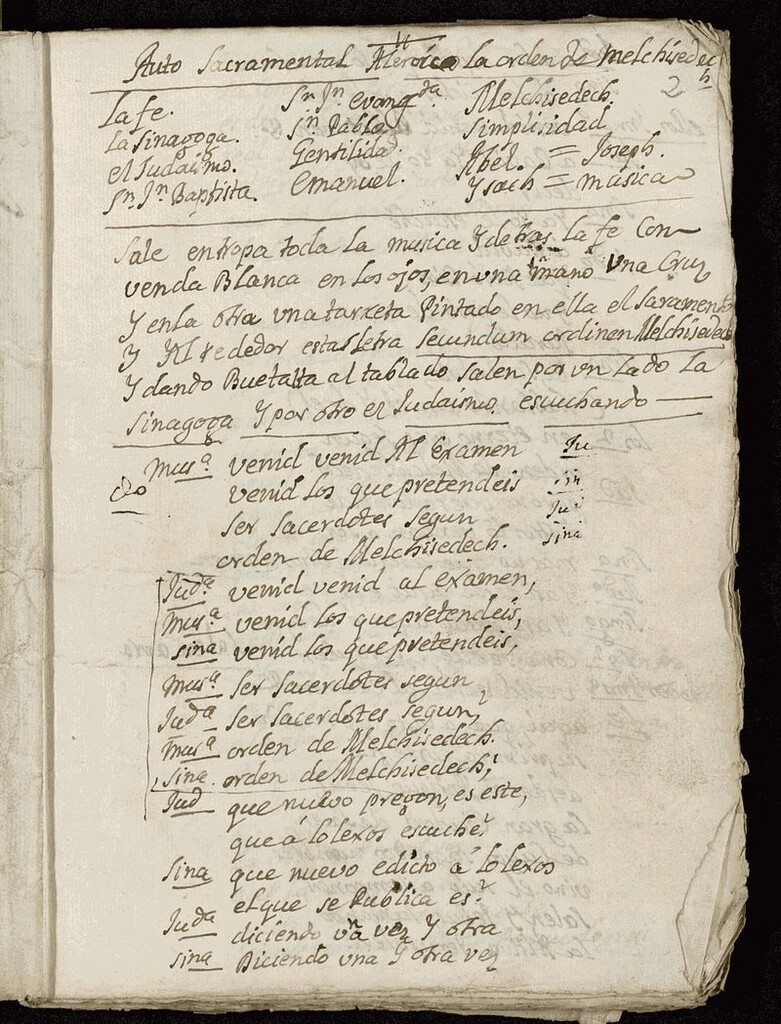 Auto Sacramental Heroico La orden de Melchisedech
2
La fe. Sn. Jn. evangta. Melchisedech.
La Sinagoga. Sn. Pablo. Simplisidad.
el Judaismo. Gentilidad. Abel. = Joseph.
Sn. Jn. Baptista. Emanuel. Ysach = musica
Sale en tropa toda La musica Y detras La fe Con
venda Blanca en los ojos, en una mano Una Cruz
Y en la otra una tarxeta Pintado en ella el Saramento
Y Al rededor estas letra Secundum ordinen Melchisedech
Y dando Buelta al tablado salen por un Lado La
Sinagoga Y por otro el Judaismo escuchando
Musa. venid venid Al Examen Ju
venid Los que pretendeis Sin
Ser Sacerdotes segun Jud
orden de Melchisedech. Sina
Juda. venid venid al examen,
Musa. venid los que pretendeis,
Sina venid los que pretendeis,
Musa. Ser Sacerdotes segun
Juda. Ser Sacerdotes segun,
Musa. orden de Melchisedech.
Sina. orden de Melchisedech,
Jud que nuevo pregon, es este,
que á lo lexos escuche?
Sina que nuevo edicto á lo lexos
el que se Publica es?
Juda diciendo una vez Y otra
Sina Diciendo una Y otra vez